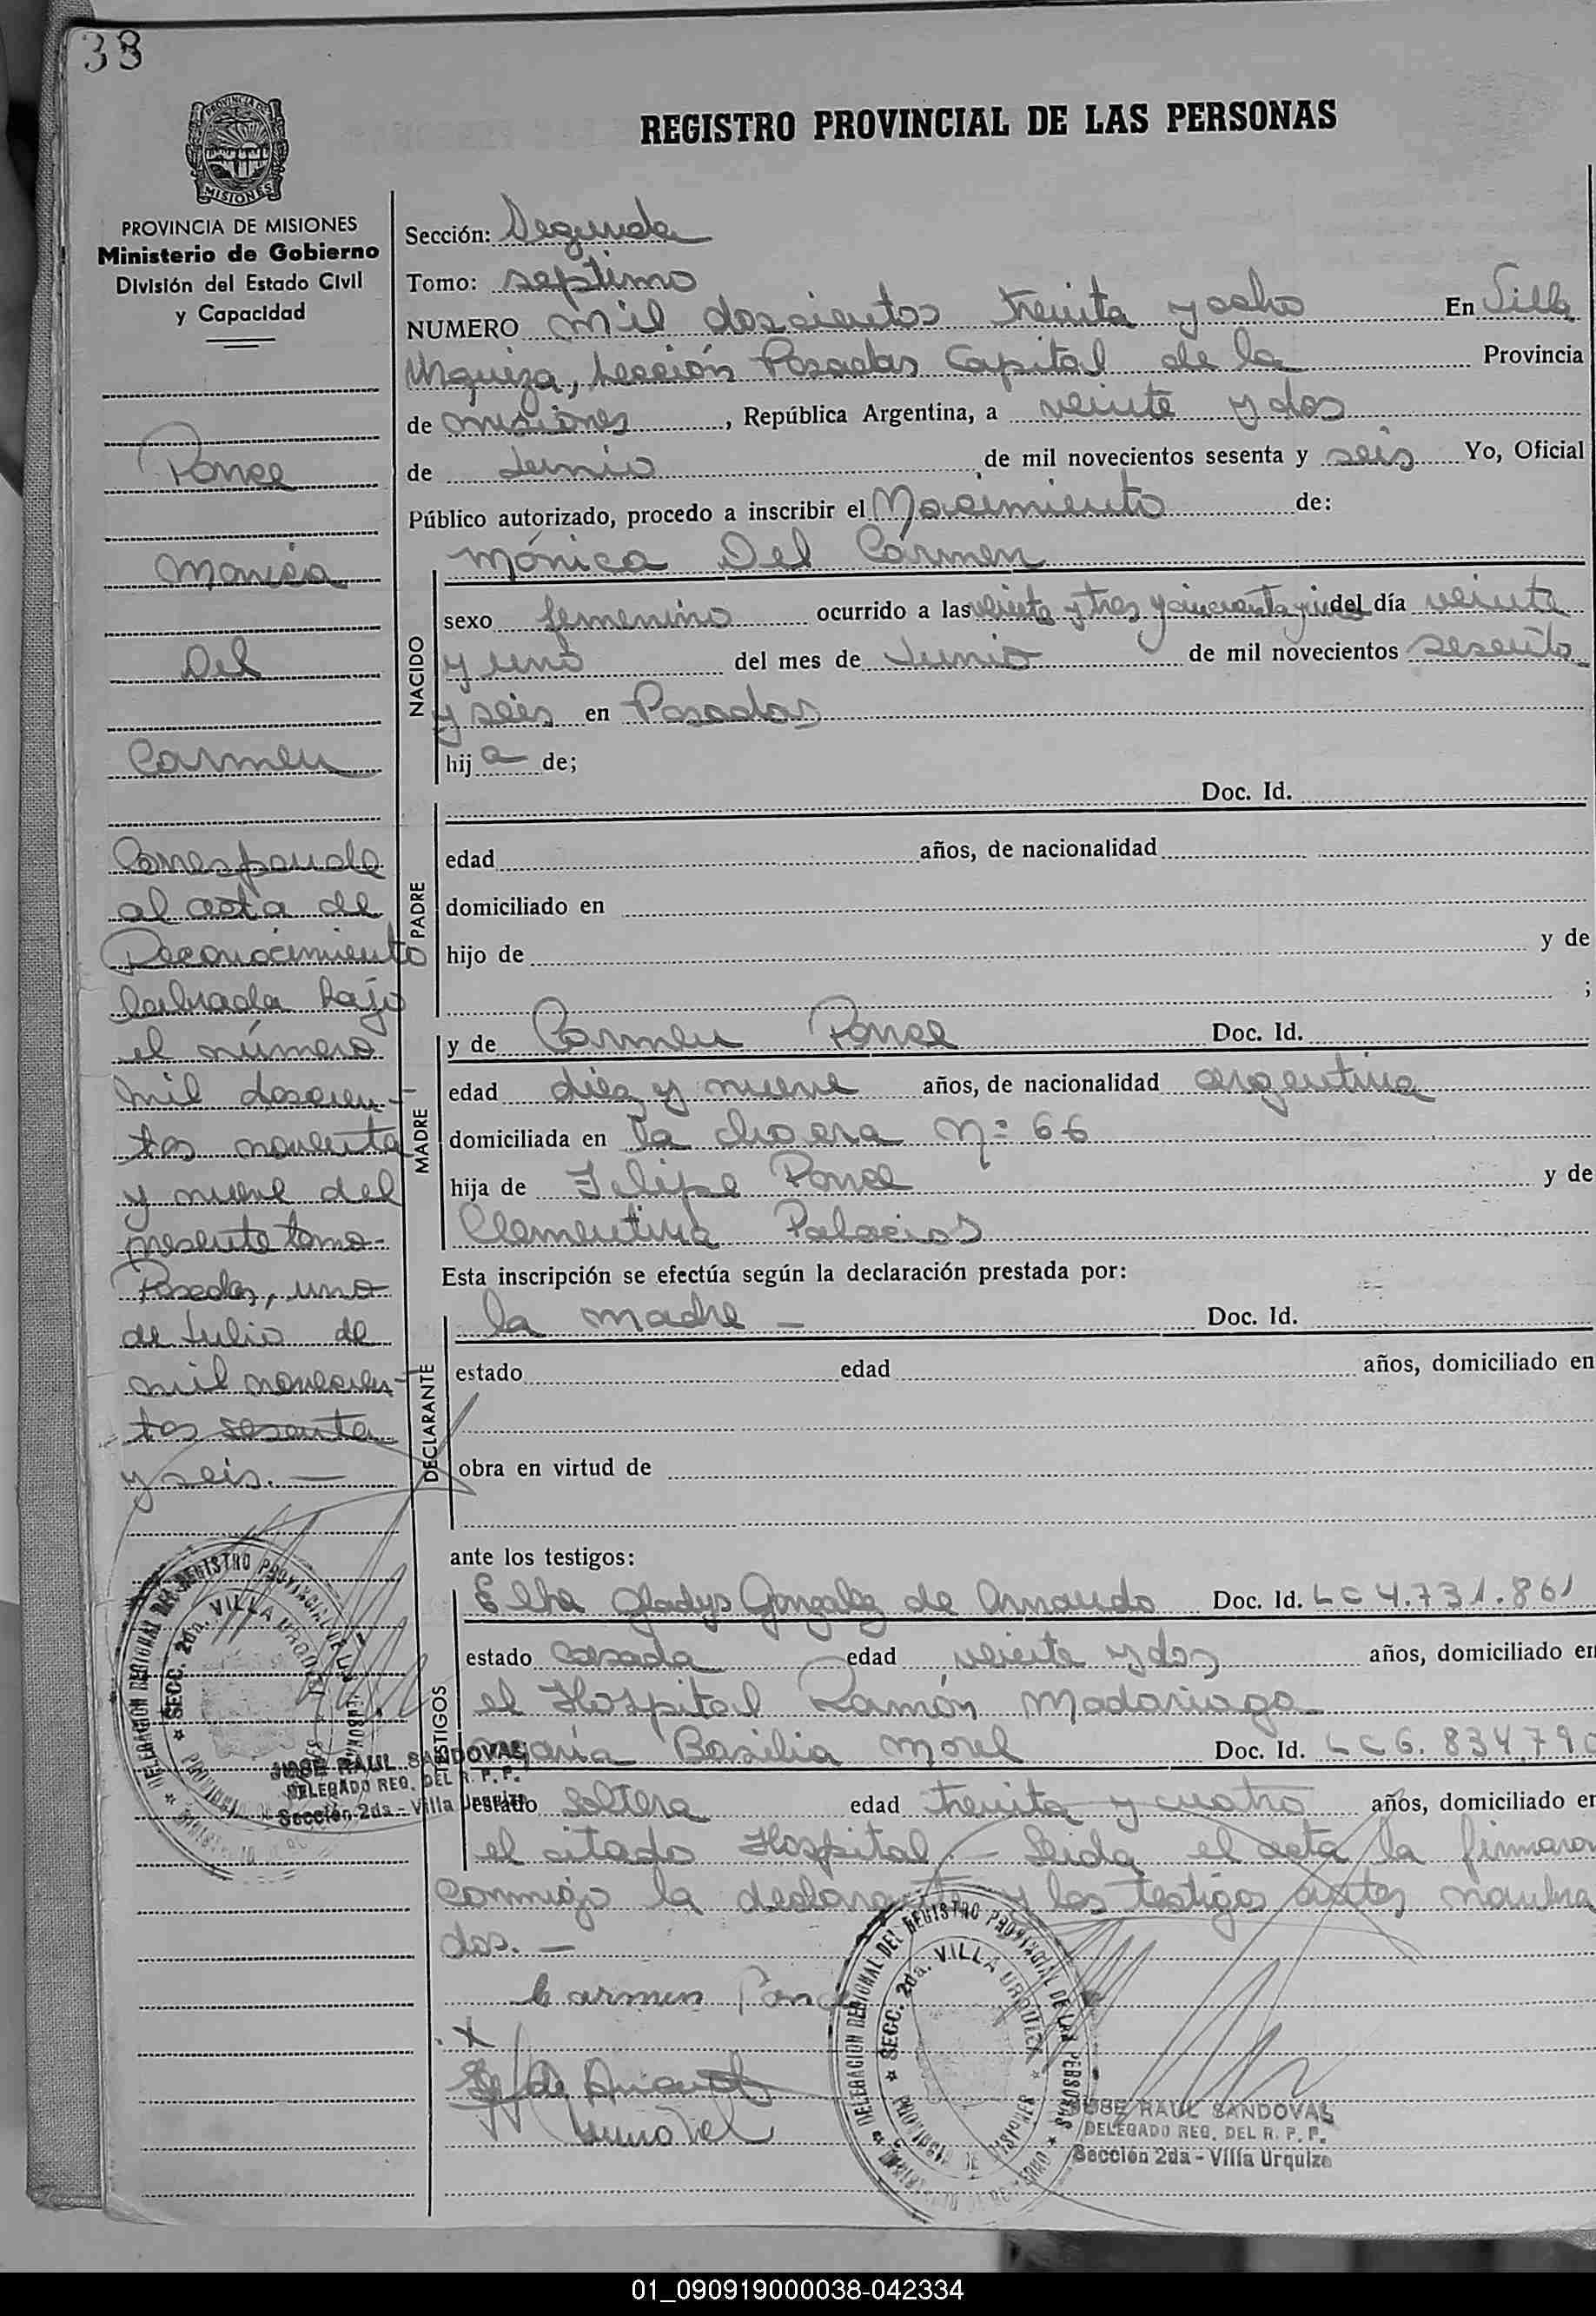 38
PROVINCIA DE MISIONES
PROVINCIA DE MISIONES
Ministerio de Gobierno
División del Estado Civil
y Capacidad
Ponce
Monica
Del
Carmen
Corresponde
al acta de
Reconocimiento
labrada bajo
el número
mil doscien-
tos noventa
y nueve del
presente tomo-
Posadas, uno
de Julio de
mil novecien-
tos sesenta
y seis. —
DELEGACION REGIONAL DEL REGISTRO PROVINCIAL DE LAS PERSONAS
SECC. 2da. VILLA URQUIZA
JOSE RAUL SANDOVAL
DELEGADO REG. DEL R. P. P.
Sección 2da - Villa Urquiza
REGISTRO PROVINCIAL DE LAS PERSONAS
Sección: Segunda
Tomo: septimo
NUMERO mil doscientos treinta y ocho En Villa
Urquiza, Sección Posadas Capital de la Provincia
de misiones, República Argentina, a veinte y dos
de Junio de mil novecientos sesenta y seis Yo, Oficial
Público autorizado, procedo a inscribir el Nacimiento de:
Mónica Del Carmen
NACIDO
sexo femenino ocurrido a las veinte y tres y cincuenta y del día veinte
y uno del mes de Junio de mil novecientos sesenta
y seis en Posadas
hija de;
Doc. Id.
PADRE
edad años, de nacionalidad
domiciliado en
hijo de y de
;
MADRE
y de Carmen Ponce Doc. Id.
edad diez y nueve años, de nacionalidad argentina
domiciliada en la chacra Nº 66
hija de Felipe Ponce y de
Clementina Palacios
Esta inscripción se efectúa según la declaración prestada por:
DECLARANTE
la madre — Doc. Id.
estado edad años, domiciliado en
obra en virtud de
ante los testigos:
TESTIGOS
Elba Gladys Gonzalez de Arnaudo Doc. Id. LC 4.731.861
estado casada edad veinte y dos años, domiciliado en
el Hospital Ramón Madariaga
María Basilia Morel Doc. Id. LC 6.834.790
estado soltera edad treinta y cuatro años, domiciliado en
el citado Hospital. — Leida el acta la firmaron
conmigo la declarante y los testigos antes nombra
dos. —
Carmen Ponce
DELEGACION REGIONAL DEL REGISTRO PROVINCIAL DE LAS PERSONAS
SECC. 2da. VILLA URQUIZA
PROVINCIA DE MISIONES
JOSE RAUL SANDOVAL
DELEGADO REG. DEL R. P. P.
Sección 2da - Villa Urquiza
01_090919000038-042334